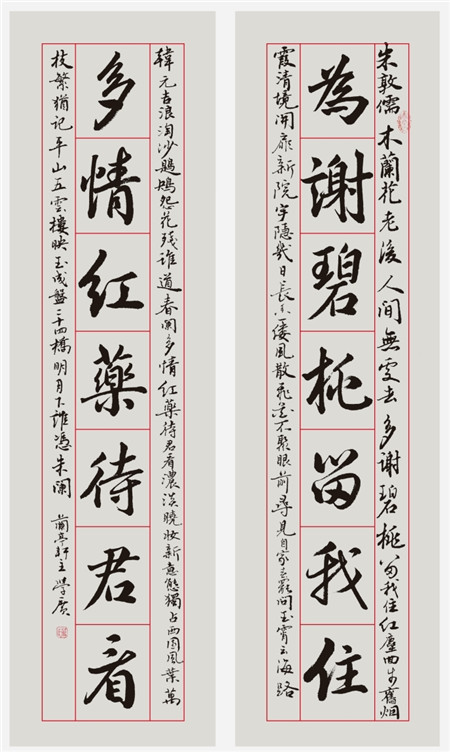 朱敦儒木蘭花老後人间無處去多謝碧桃留我住红塵回步舊烟
為謝碧桃留我住
霞清境開扉新院宇隱幾日長香一縷風散飛花不聚眼前尋見自家春罷問玉霄云海路
韓元吉浪淘沙鶗鴂怨花殘誰道春闌多情紅藥待君看濃淡曉妝新意態獨占西園風葉萬
多情紅藥待君看
枝繁猶記平山五雲樓映玉成盤二十四橋明月下誰憑朱闌 蘭亭軒主學廣